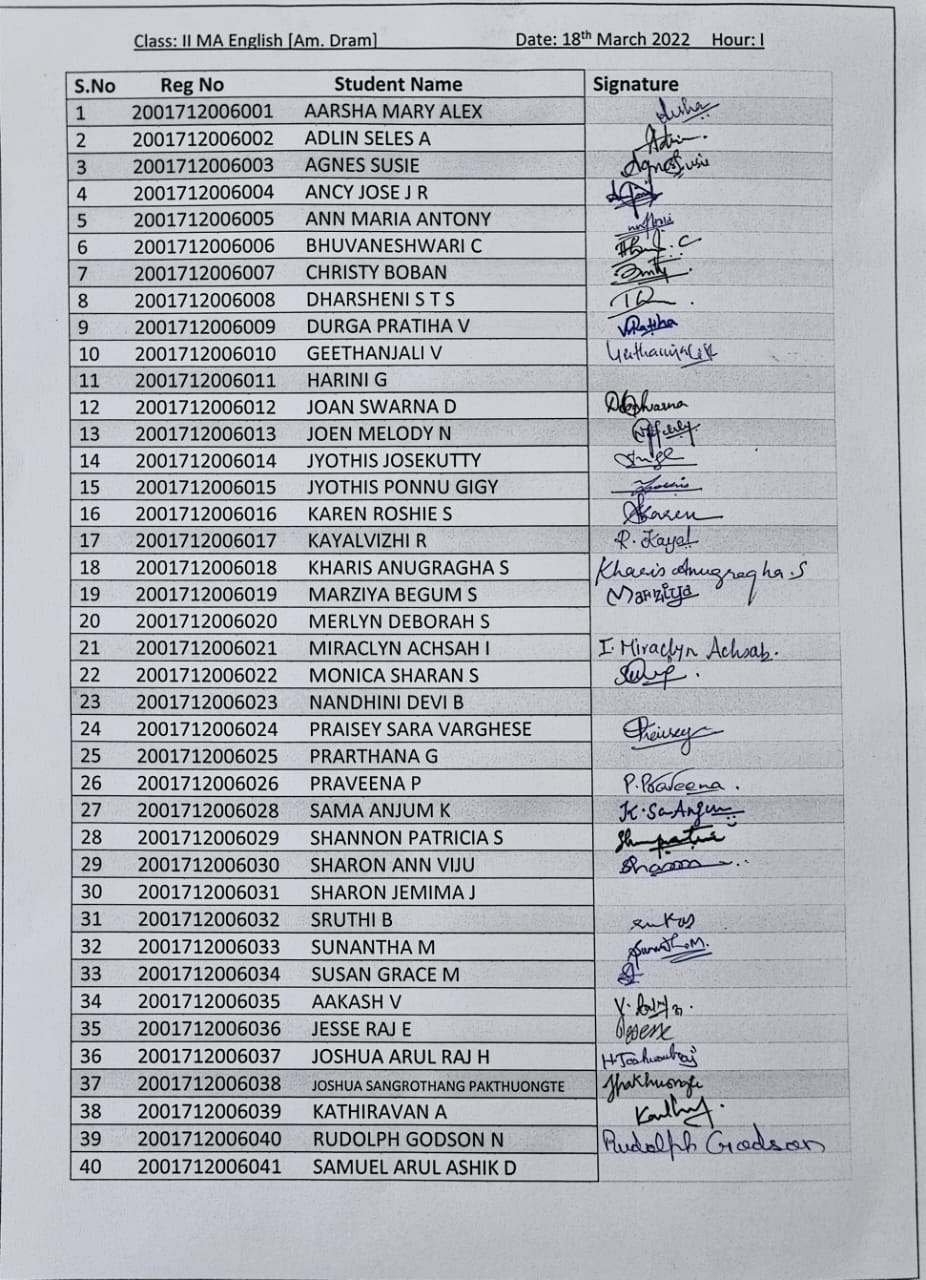 Class: II MA English [Am. Dram] Date: 18th March 2022 Hour: I
S.No Reg No Student Name Signature
1 2001712006001 AARSHA MARY ALEX
2 2001712006002 ADLIN SELES A Adlin.
3 2001712006003 AGNES SUSIE Agnes Susie
4 2001712006004 ANCY JOSE J R
5 2001712006005 ANN MARIA ANTONY
6 2001712006006 BHUVANESHWARI C
7 2001712006007 CHRISTY BOBAN
8 2001712006008 DHARSHENI S T S
9 2001712006009 DURGA PRATIHA V V.Pratiha
10 2001712006010 GEETHANJALI V
11 2001712006011 HARINI G
12 2001712006012 JOAN SWARNA D
13 2001712006013 JOEN MELODY N
14 2001712006014 JYOTHIS JOSEKUTTY
15 2001712006015 JYOTHIS PONNU GIGY
16 2001712006016 KAREN ROSHIE S Karen
17 2001712006017 KAYALVIZHI R R. Kayal
18 2001712006018 KHARIS ANUGRAGHA S Kharis Anugragha.S
19 2001712006019 MARZIYA BEGUM S Marziya
20 2001712006020 MERLYN DEBORAH S
21 2001712006021 MIRACLYN ACHSAH I I. Miraclyn Achsah.
22 2001712006022 MONICA SHARAN S
23 2001712006023 NANDHINI DEVI B
24 2001712006024 PRAISEY SARA VARGHESE Praisey
25 2001712006025 PRARTHANA G
26 2001712006026 PRAVEENA P P. Praveena.
27 2001712006028 SAMA ANJUM K K. Sa Anjum
28 2001712006029 SHANNON PATRICIA S
29 2001712006030 SHARON ANN VIJU Sharon
30 2001712006031 SHARON JEMIMA J
31 2001712006032 SRUTHI B
32 2001712006033 SUNANTHA M
33 2001712006034 SUSAN GRACE M
34 2001712006035 AAKASH V
35 2001712006036 JESSE RAJ E
36 2001712006037 JOSHUA ARUL RAJ H
37 2001712006038 JOSHUA SANGROTHANG PAKTHUONGTE
38 2001712006039 KATHIRAVAN A
39 2001712006040 RUDOLPH GODSON N Rudolph Godson
40 2001712006041 SAMUEL ARUL ASHIK D